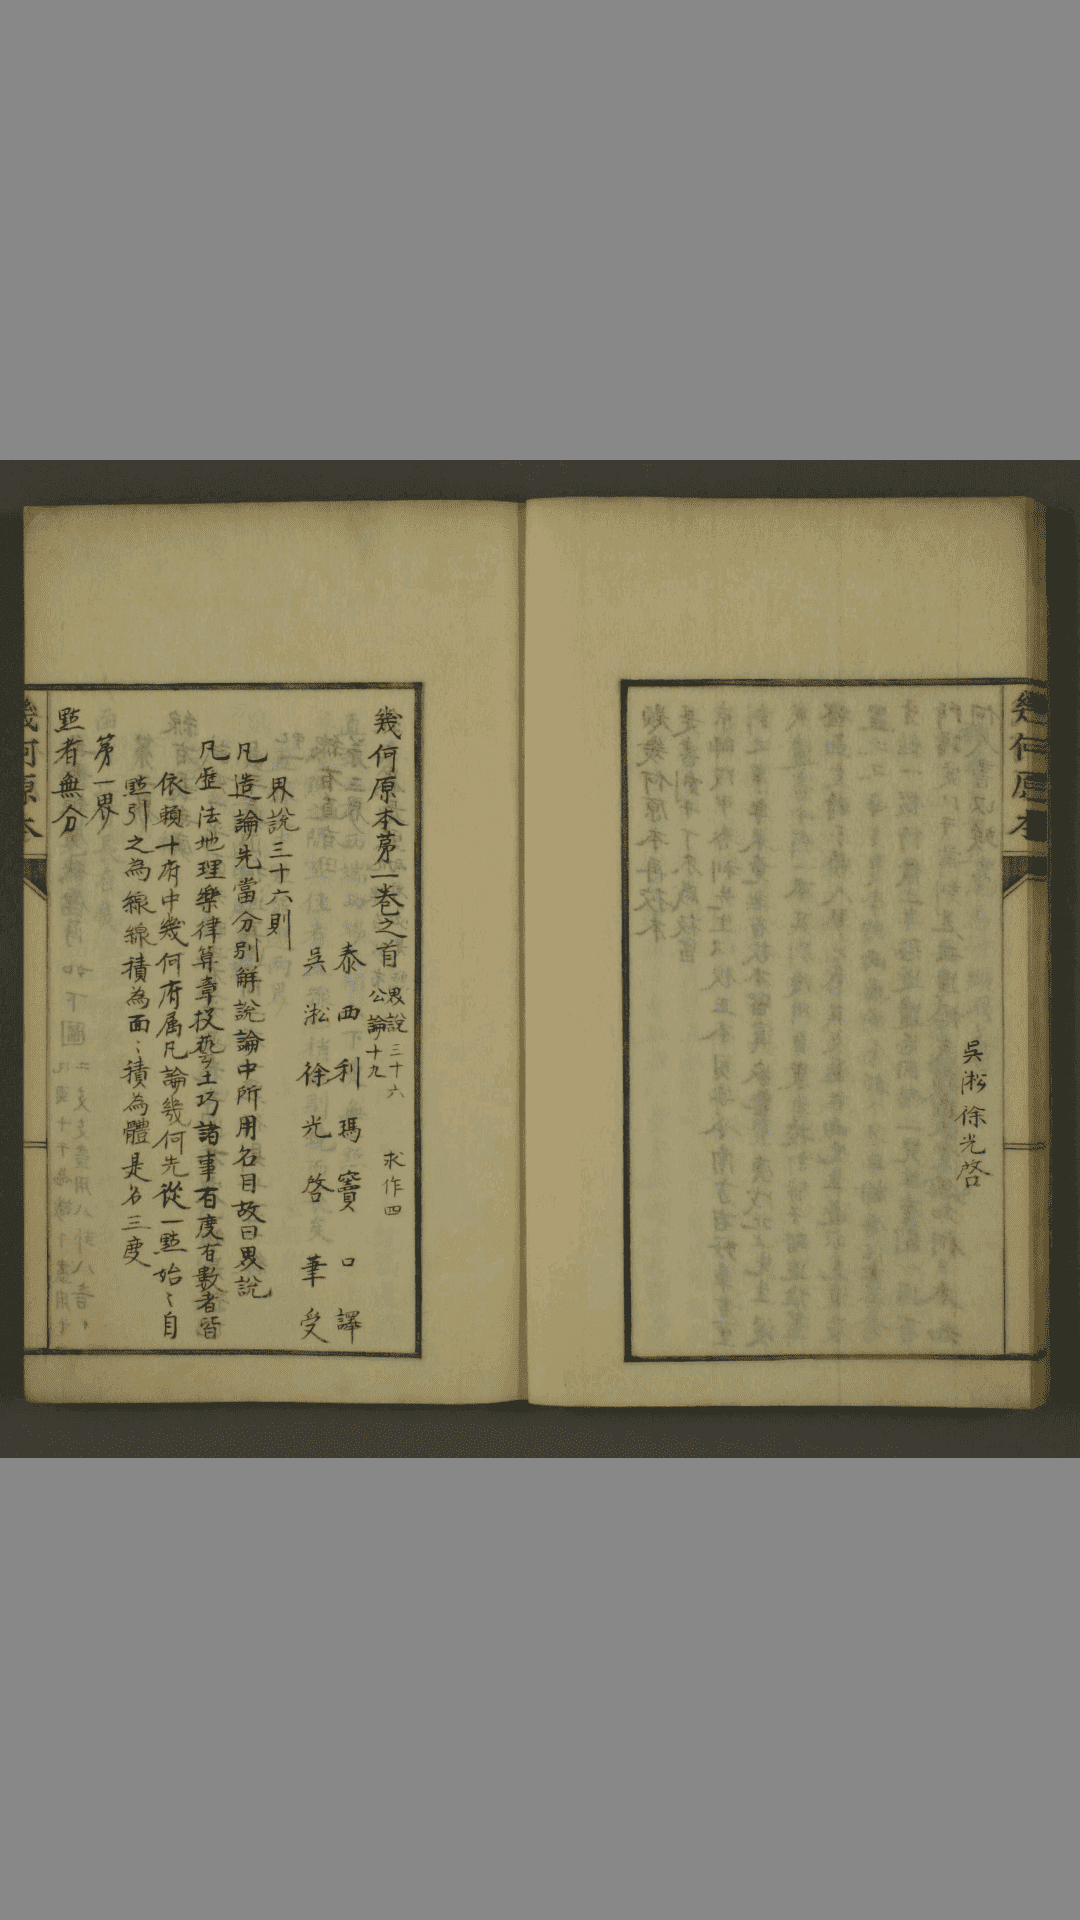 吳淞徐光啓
幾何原本第一卷之首 界說三十六 公論十九 求作四
泰西利瑪竇口譯
吳淞徐光啓筆受
界說三十六則
凡造論先當分別解說論中所用名目故曰界說
凡歷法地理樂律算章技藝工巧諸事有度有數者皆
依賴十府中幾何府属凡論幾何先從一㸃始〻自
㸃引之為線線積為面〻積為體是名三度
第一界
㸃者無分
幾何原本